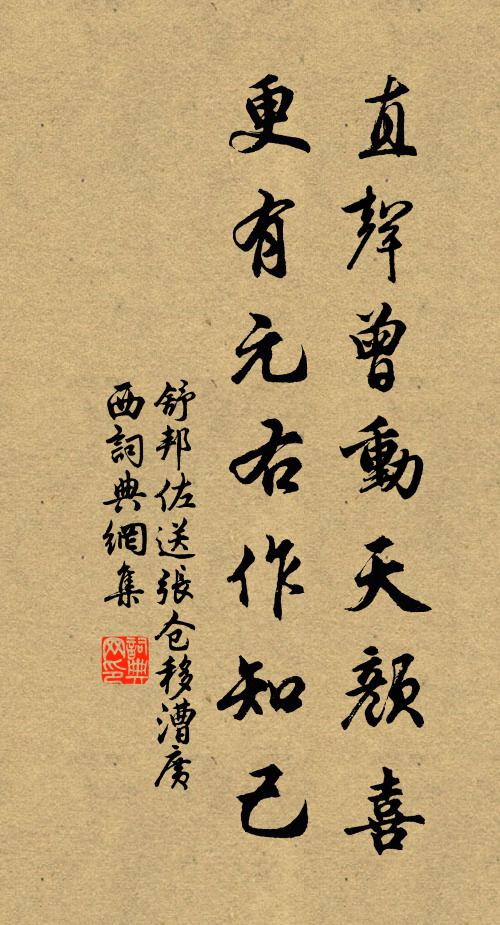 直聲曾動天顏喜
更有元右作知己
舒邦佐送張仓移漕廣
西詞典網集
詞典网印